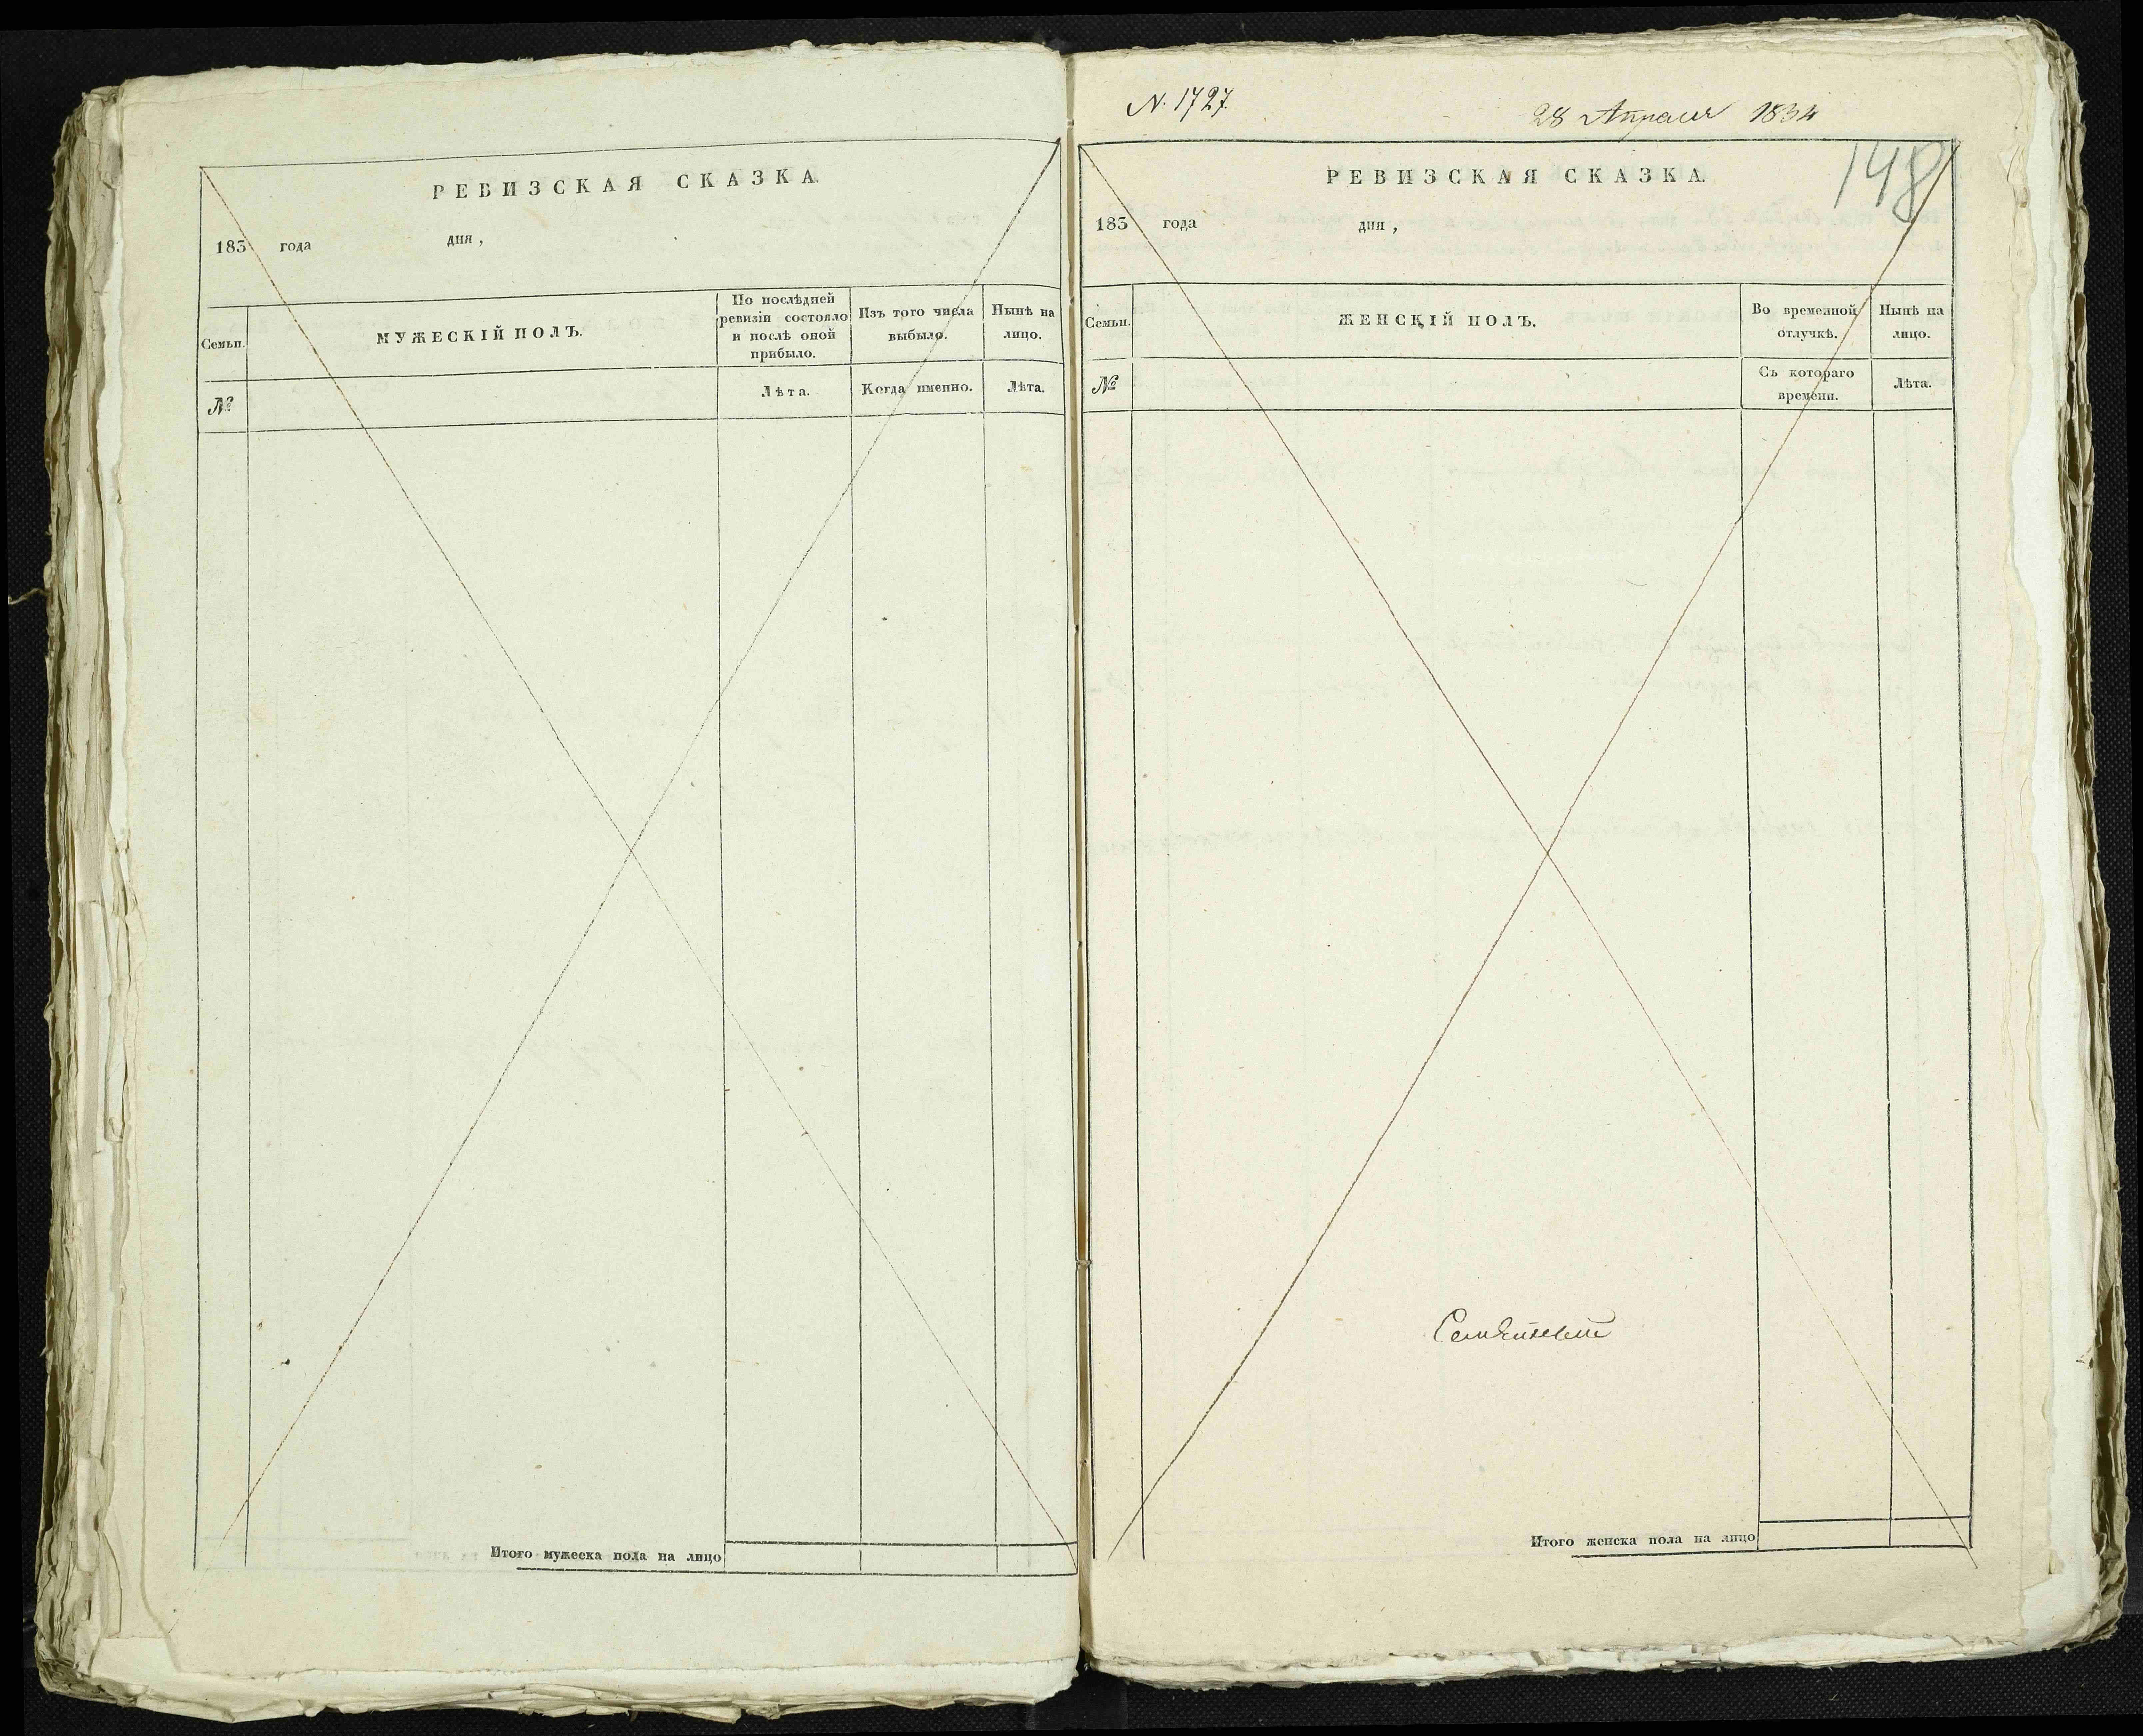 РЕВИЗСКАЯ СКАЗКА.
183 года дня ,
Семьи.
МУЖЕСКІЙ ПОЛЪ.
По послѣдней
ревизіи состояло
и послѣ оной
прибыло.
Изъ того числа
выбыло.
Нынѣ на
лицо.
№
Лѣта.
Когда именно.
Лѣта.
Итого мужеска пола на лицо
N. 1727.
28 Апреля 1834
148
РЕВИЗСКАЯ СКАЗКА.
183 года дня ,
Семьи.
ЖЕНСКІЙ ПОЛЪ.
Во временной
отлучкѣ.
Нынѣ на
лицо.
№
Съ котораго
времени.
Лѣта.
Итого женска пола на лицо